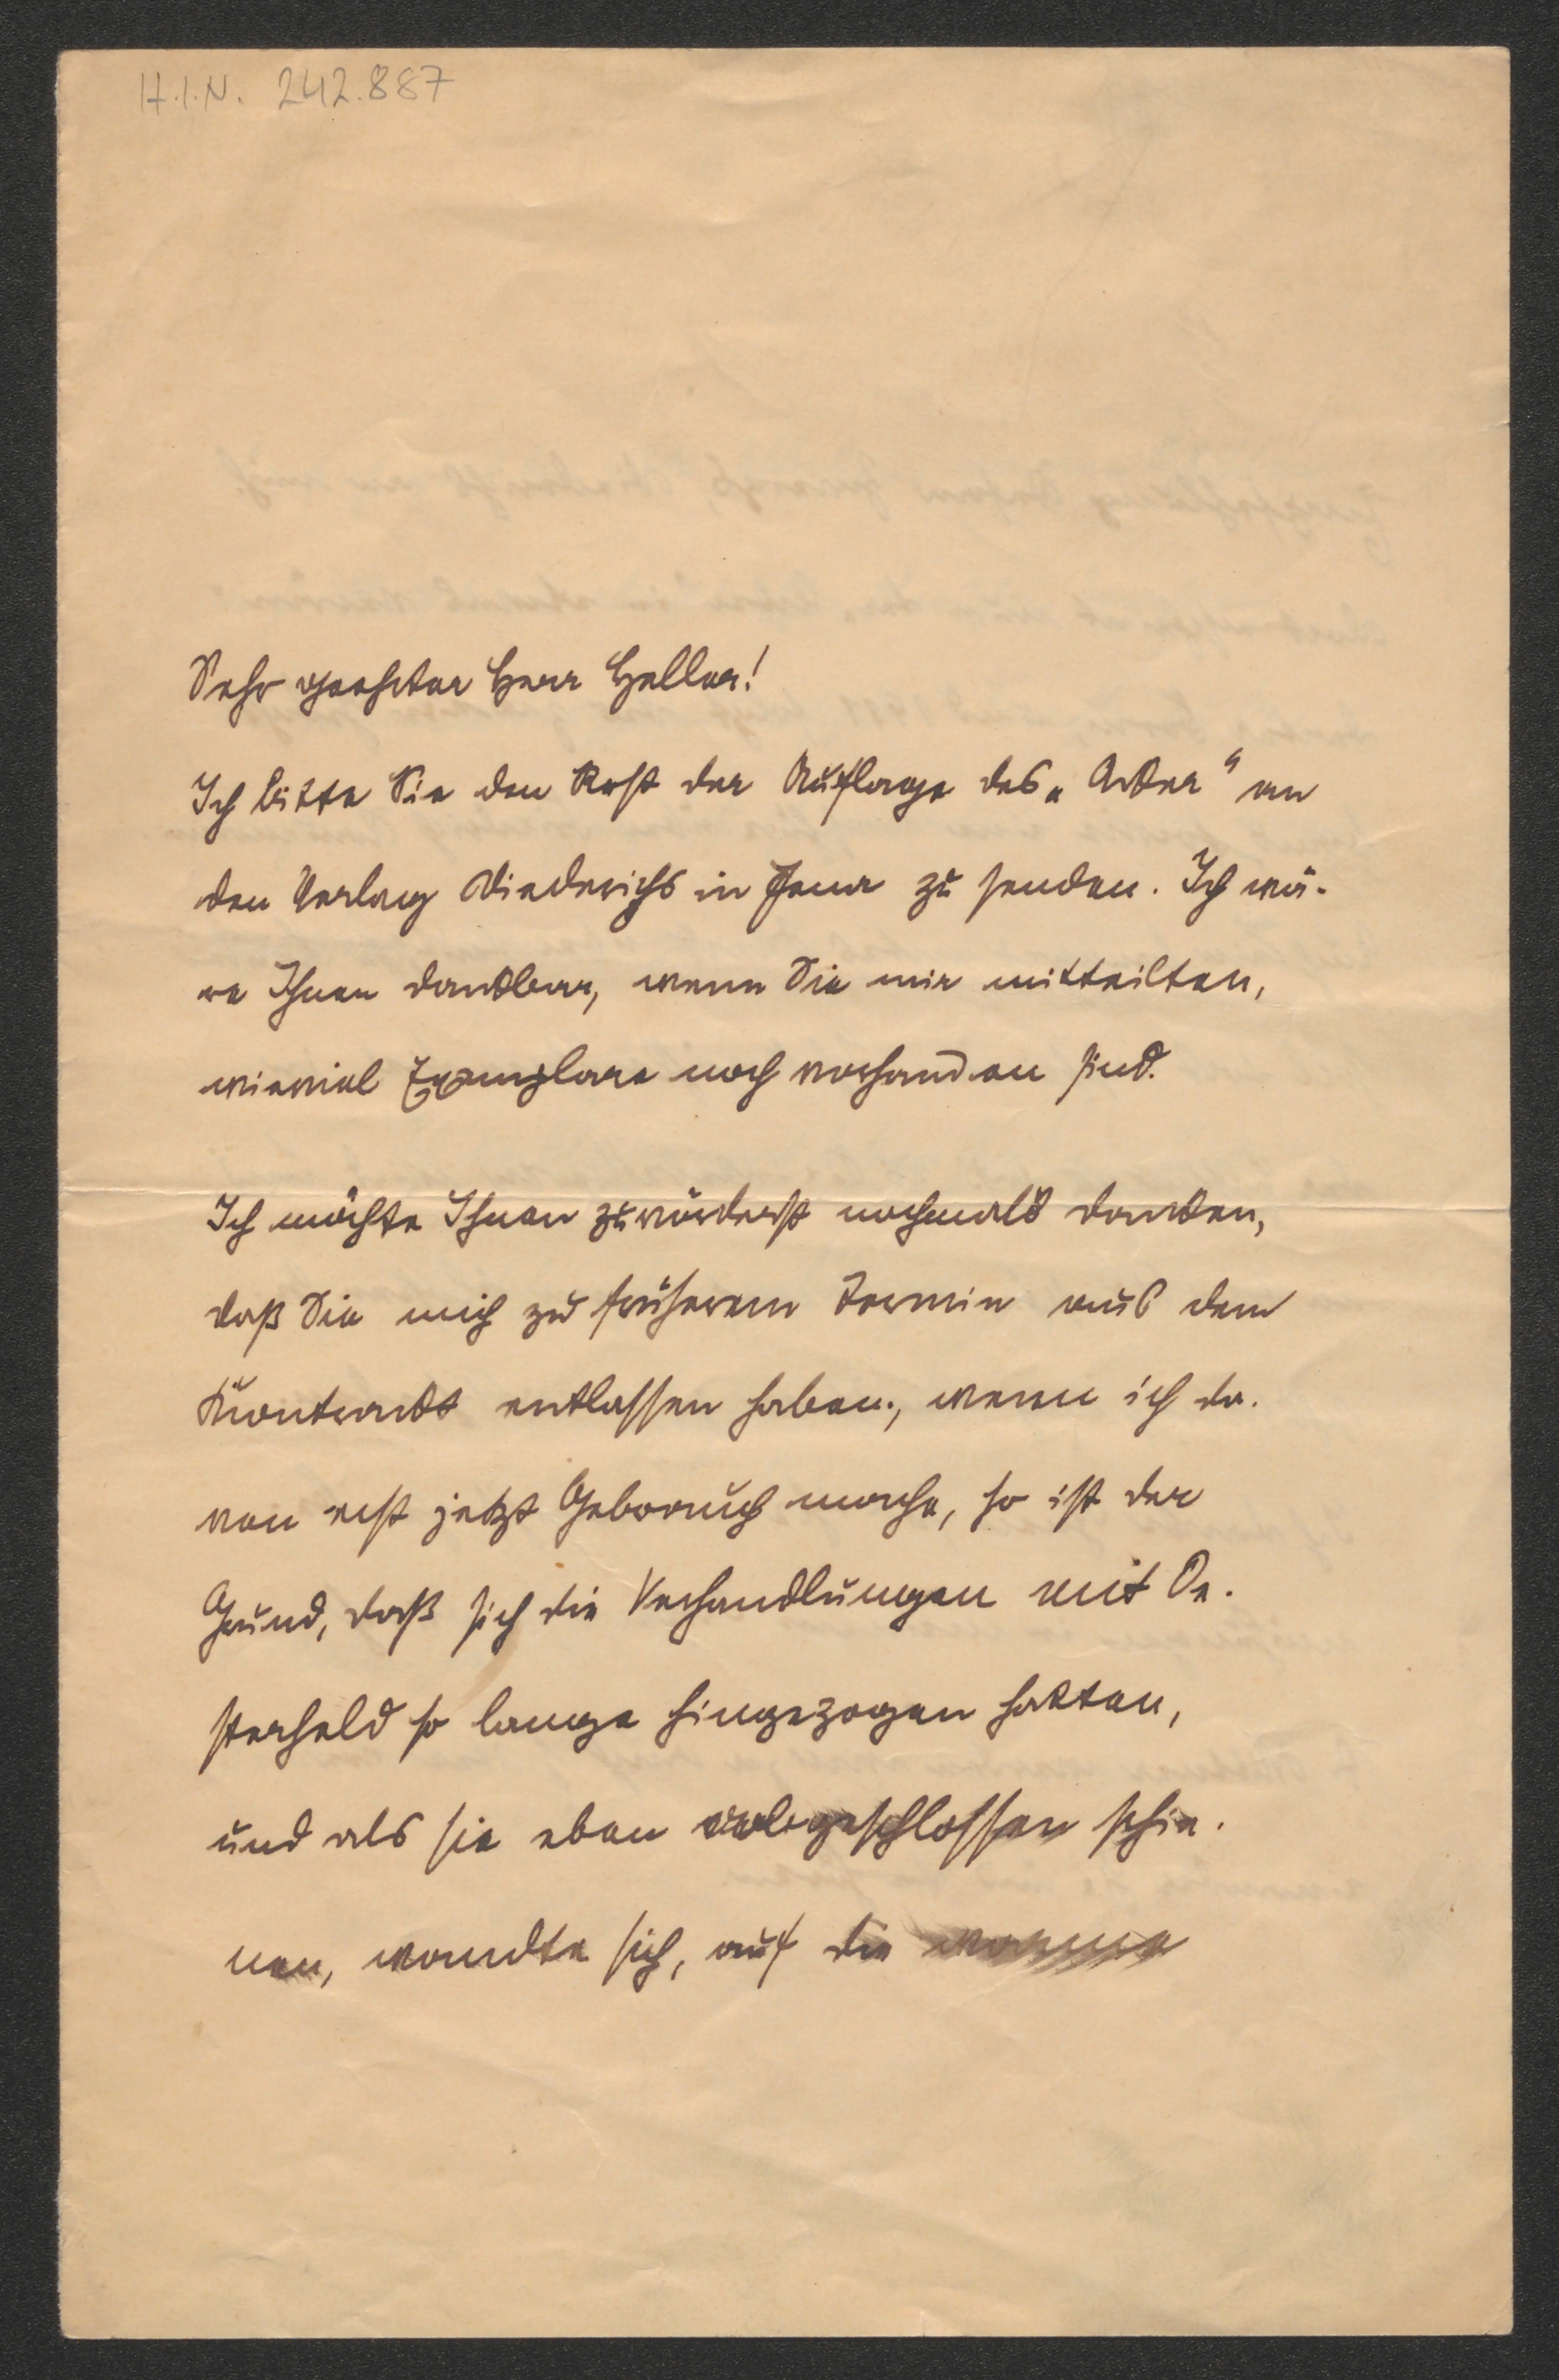 H.I.N. 242.887
Sehr geehrter Herr Heller!
Ich bitte Sie den Rest der Auflage des „Acker" an
den Verlag Diederichs in Jena zu senden. Ich wä-
re Ihnen dankbar, wenn Sie mir mitteilten,
wieviel Exemplare noch vorhanden sind.
Ich möchte Ihnen zuvörderst nochmals danken,
daß Sie mich zu früherem Termin aus dem
Kontrakt entlassen haben, wenn ich da-
von erst jetzt Gebrauch mache, so ist der
Grund, daß sich die Verhandlungen mit Oe-
sterheld so lange hingezogen hatten,
und als sie eben abgeschlossen schie-
nen, wandte sich, auf die warme